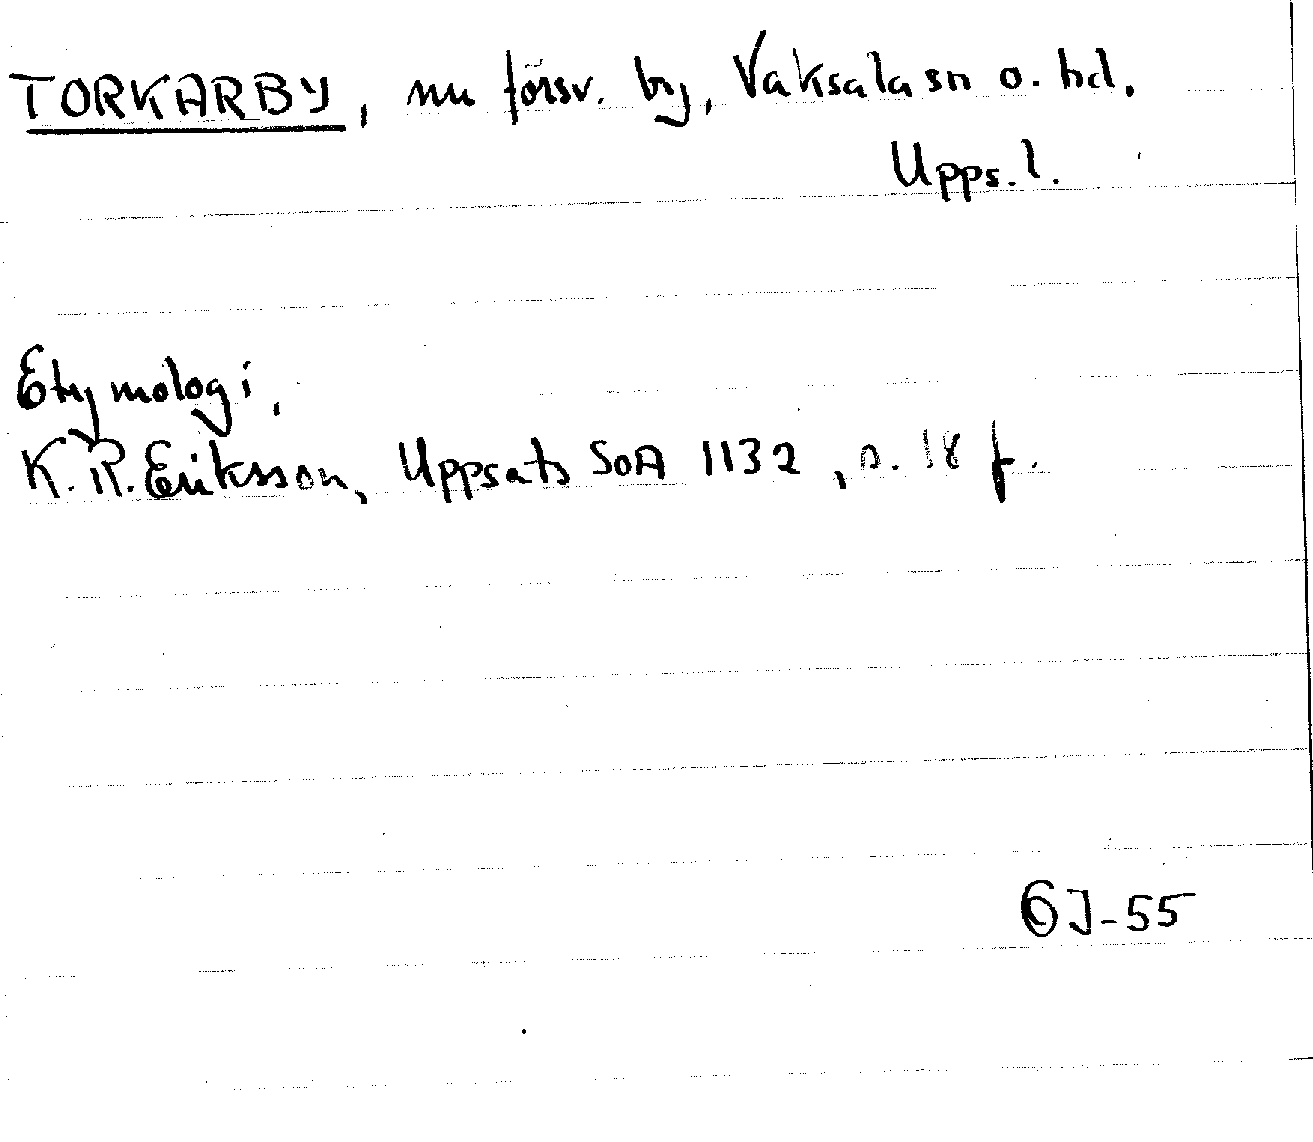 TORKARBY, nu försv. by, Vaksala sn o. hd.
Upps. l.
Etymologi,
K. R. Eriksson, Uppsats SOA 1132, s. 18 f.
GJ-55